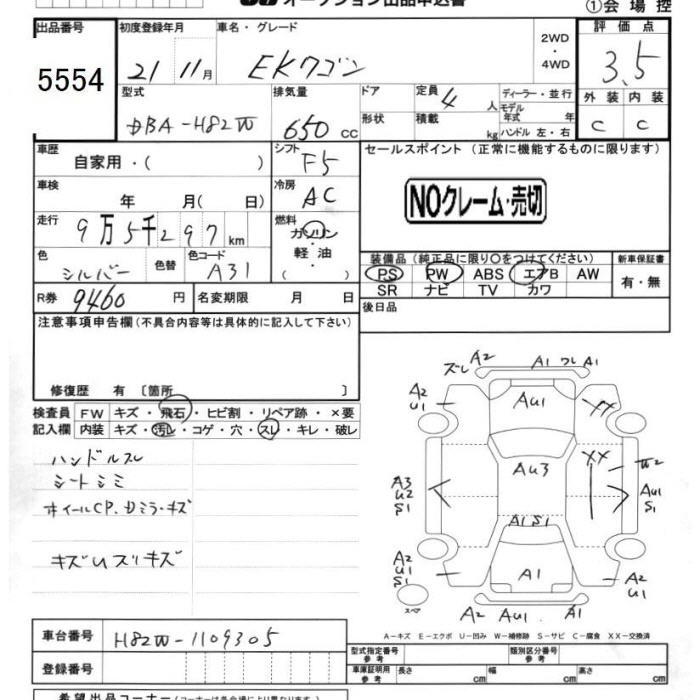 オークション出品申込書
①会場控
出品番号 初度登録年月 車名・グレード 2WD・4WD 評価点
5554 21 11月 EKワゴン 3.5
型式 排気量 ドア 定員 4人 ディーラー・並行 外装 内装
DBA-H82W 650cc 形状 積載 kg モデル年式 年式 ハンドル 左・右 C C
車歴 自家用・( ) シフト F5 セールスポイント (正常に機能するものに限ります)
車検 年 月( 日) 冷房 AC NOクレーム・売切
走行 9万5千297km 燃料 ガソリン・軽油
装備品(純正品に限り○をつけてください) 新車保証書
色 シルバー 色替 色コード A31 PS PW ABS エアB AW 有・無
SR ナビ TV カワ
R券 9460円 名変期限 月 日 後日品
注意事項申告欄(不具合内容等は具体的に記入して下さい)
修復歴 有 〔箇所 〕
検査員 FW キズ・飛石・ヒビ割・リペア跡・×要
記入欄 内装 キズ・汚レ・コゲ・穴・スレ・キレ・破レ
ハンドルスレ
シートシミ
ホイールCP.Dミラーキズ
キズUスリキズ
ズレ A2 A1 ワレ A1
A2 U1 AU1 XX
AU3 XX W2
A3 U2 S1 AU1 S1
A1 S1
A2 U1 S1 A1 A2 U1
スペア A2 AU1 A1
A-キズ E-エクボ U-凹み W-補修跡 S-サビ C-腐食 XX-交換済
車台番号 H82W-1109305
型式指定番号 参考 類別区分番号 参考
登録番号 車庫証明用 参考 長さ cm 幅 cm 高さ cm
希望出品コーナー(コーナーは各会場により異なります)